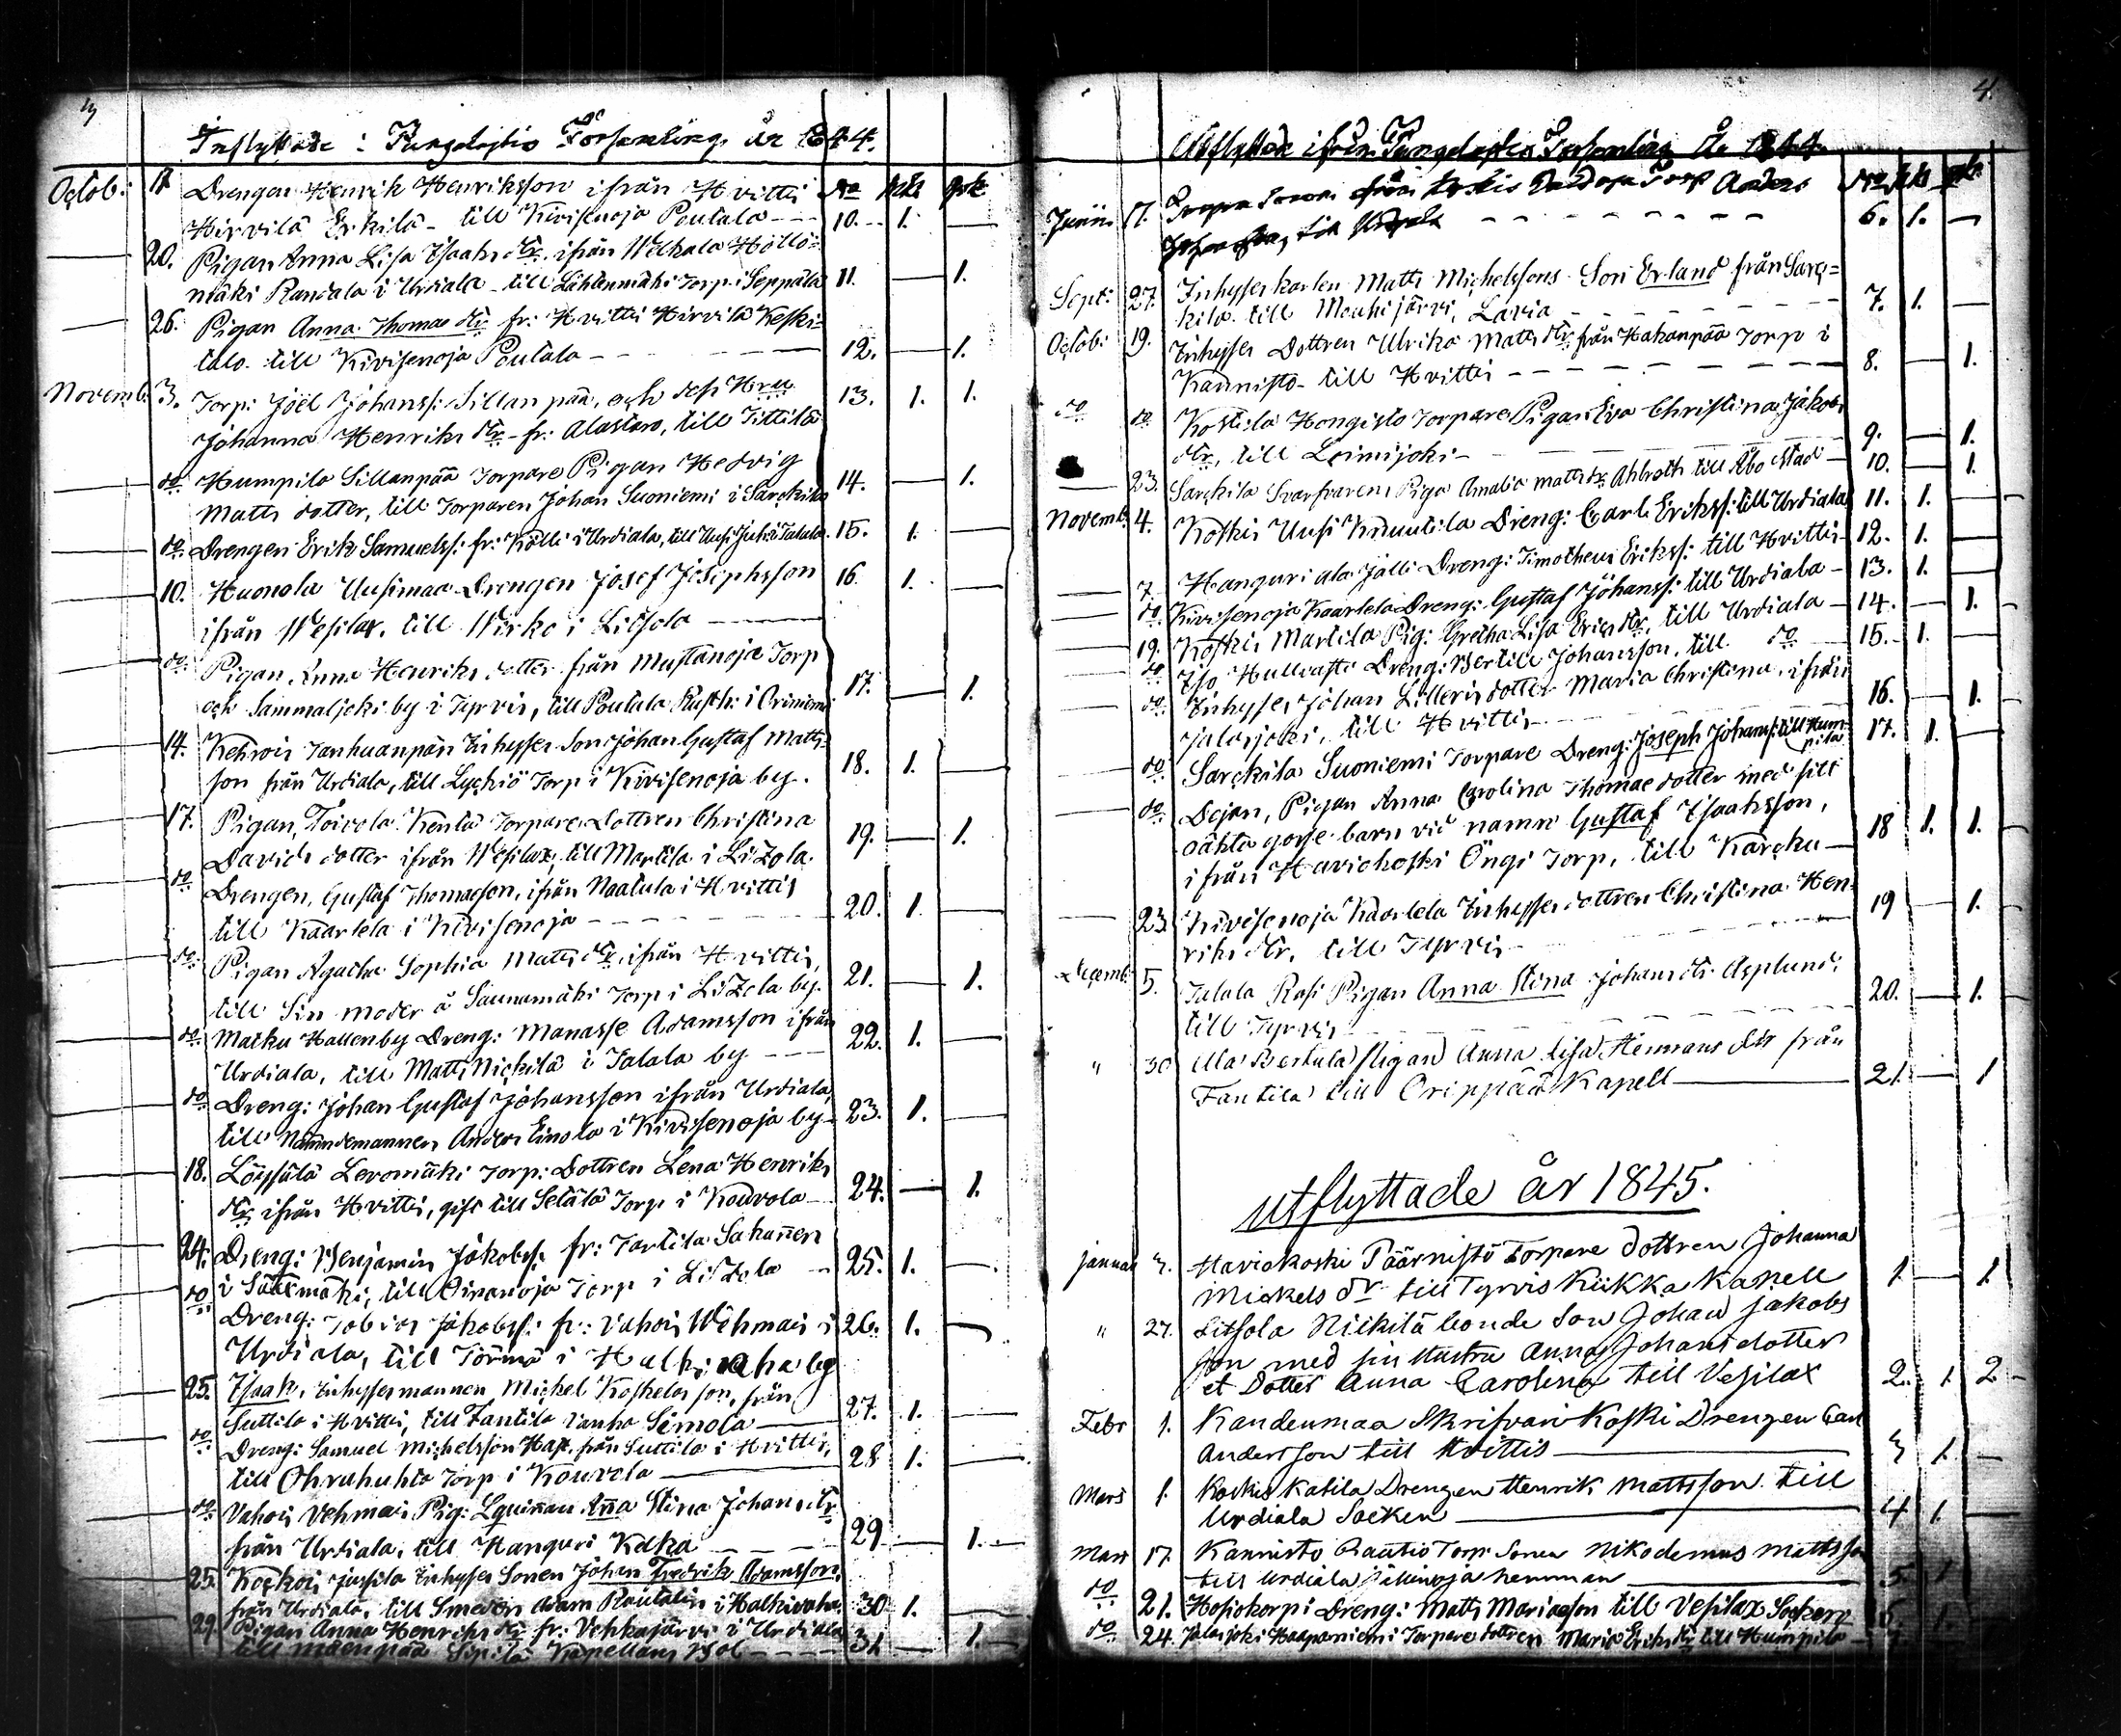 3
Inflyttade i Pungalaitio Församling år 1844.
No mk qvk
Octob: 17 Drengen Henrik Henriksson ifrån Hvittis
Hirvilä Erkilä - till Kivisenoja Poutala --- 10. 1. —
— 20. Pigan Anna Lisa Isaaks dr. ifrån Welkala Höllö=
mäki Randala i Urdiala - till Lähtenmäki Torp i Seppälä 11. — 1.
— 26. Pigan Anna Thomae dr. fr: Hvittis Hirvilä Keski=
talo till Kivisenoja Poutala - 12. — 1.
Novemb. 3. Torp: Joël Johanss: Sillanpää, och dess Hru
Johanna Henriks dr. - fr: Alastaro, till Tittilä 13. 1. 1.
— do Humpila Sillanpää Torpare Pigan Hedvig
Matts dotter, till Torparen Johan Suoniemi i Sarckila 14. — 1.
— do. Drengen Erik Samuelss: fr: Kölli i Urdiala, till Uusi Juti i Talala. 15. 1. —
10. Huonola Uusimaa Drengen Josef Josephsson
ifrån Wesilax, till Wirko i Litsola — 16. 1. —
do. Pigan Anna Henriks dotter från Mustanoja Torp
och Sammaljoki by i Tyrvis, till Poutala Rusth: i Oriniemi 17. — 1.
14. Kehrois Tanhuanpän Inhyses Son Johan Gustaf Matts=
son från Urdiala, till Lyckiö Torp i Kivisenoja by. 18. 1. —
17. Pigan, Toivola Kentä Torpare Dottren Christina
Davids dotter ifrån Wesilax, till Martila i Litzola 19. — 1.
do Drengen, Gustaf Thomasson, ifrån Naatula i Hvittis
till Kaarlela i Kivisenoja --- 20. 1. —
do. Pigan Agatha Sophia Matts dr. ifrån Hvittis,
till Sin moder å Saunamäki Torp i Litzola by. 21. — 1.
do. Matku Hallenby Dreng: Manasse Adamsson ifrån
Urdiala, till Matts Nickilä i Talala by --- 22. 1. —
do Dreng: Johan Gustaf Johansson ifrån Urdiala,
till Nämndemannen Anders Einola i Kivisenoja by - 23. 1. —
18. Löyssälä Levomäki Torp: Dottren Lena Henriks
dr. ifrån Hvittis, gift till Setälä Torp i Kouvola — 24. — 1.
24. Dreng: Benjamin Jakobss: fr: Tarttila Sahanen
i Sääxmäki, till Oivanoja Torp i Litzola - 25. 1. —
do Dreng: Tobias Jakobss: fr: Vahois Wehmais i
Urdiala, till Törmä i Halkivaha by 26. 1. —
25. Isaak, Inhysesmannen, Michel Koskelas son, från
Suttila i Hvittis, till Tantila Vanha Simola — 27. 1. —
do Dreng: Samuel Michelsson Hax, från Suttila i Hvittis,
till Ohrahuhta Torp i Kouvola — 28 1. —
do Vahois Vehmais Pig: Anna Stina Johans dr.
från Urdiala, till Hanguri Kelka --- 29 — 1.
25. Kockois Jussila Inhyses Sonen Johan Fredrik Adamsson,
från Urdiala, till Smeden Adam Rautalin i Halkivaha 30 1. —
29. Pigan Anna Henriks dr. fr: Vehkajärvi i Urdiala
till Mäenpää Sipilä Kapellans Bol --- 31 — 1.
4.
Utflyttade ifrån Pungalaitio Församling År 1844.
No mk qvk
Junii 17. Torp Anders
6. 1. —
Sept: 27. Inhyseskarlen Matts Michelssons Son Erland från Sarc=
kila till Mouhijärvi, Lavia 7. 1. —
Octob: 19. Inhyses Dottren Ulrika Matts dr. från Hakanpää Torp i
Kannisto - till Hvittis --- 8. — 1.
do do Kostila Hongisto Torpare Pigan Eva Christina Jakobs
dr, till Loimijoki - 9. — 1.
— 23. Sarckila Svarfvarens Piga Amalia Matts dr. Ahlroth till Åbo Stad 10. — 1.
Novemb: 4. Koskis Uusi Knuutila Dreng: Carl Erikss: till Urdiala 11. 1. —
— 7. Hanguri ala Jälli Dreng: Timotheus Erikss: till Hvittis - 12. 1. —
— do. Kivisenoja Kaarlela Dreng: Gustaf Johanss: till Urdiala - 13. 1. —
— 19. Koskis Martila Pig: Gretha Lisa Erics dr, till Urdiala — 14. — 1.
— do Iso Hullvatti Dreng: Bertill Johansson, till do — 15. 1. —
— do. Inhyses Johan Lilleris dotter Maria Christina, ifrån
Jalasjoki, till Hvittis 16. — 1.
— do. Sarckila Suoniemi Torpare Dreng: Joseph Johanss: till Hum-
pila 17. 1. —
— do. Dejan, Pigan Anna Carolina Thomae dotter med sitt
oäkta gosse barn vid namn Gustaf Isaaksson,
ifrån Haviokoski Öngi Torp, till Karcku — 18 1. 1.
— 23. Kivisenoja Kaarlela Inhyses dottren Christina Hen-
riks dr, till Tyrvis 19 — 1.
Decemb. 5. Talala Rasi Pigan Anna Stina Johans dr. Asplund:
till Tyrvis --- 20. — 1.
" 30 Ala Bertula Pigan Anna Lisa Hermans dtr från
Tantila till Orippää Kapell — 21. — 1
utflyttade år 1845.
Januari 3. Haviokoski Päärnistö Torpare dottren Johanna
Mickels dr till Tyrvis Kiikka Kapell 1. — 1.
" 27. Litsola Nickilä bonde Son Johan Jakobs
son med sin Hustru Anna Johansdotter
et Dotter Anna Carolina till Vesilax 2. 1. 2 -
Febr 1. Kandenmaa Skrifvari Koski Drengen Carl
Andersson till Hvittis — 3 1. —
Mars 1. Koskis Katila Drengen Henrik Mattsson till
Urdiala Socken — 4 1. —
Mars 17. Kannisto Rautio Torp: Sonen Nikodemus Mattsson
till Urdiala hemman — 5. 1
do. 21. Hosiokorpi Dreng: Matts Mariaeson till Vesilax Socken 6. 1.
do 24. Jalasjoki Haapaniemi Torpare dottren Maria Eriks dr till Humpila